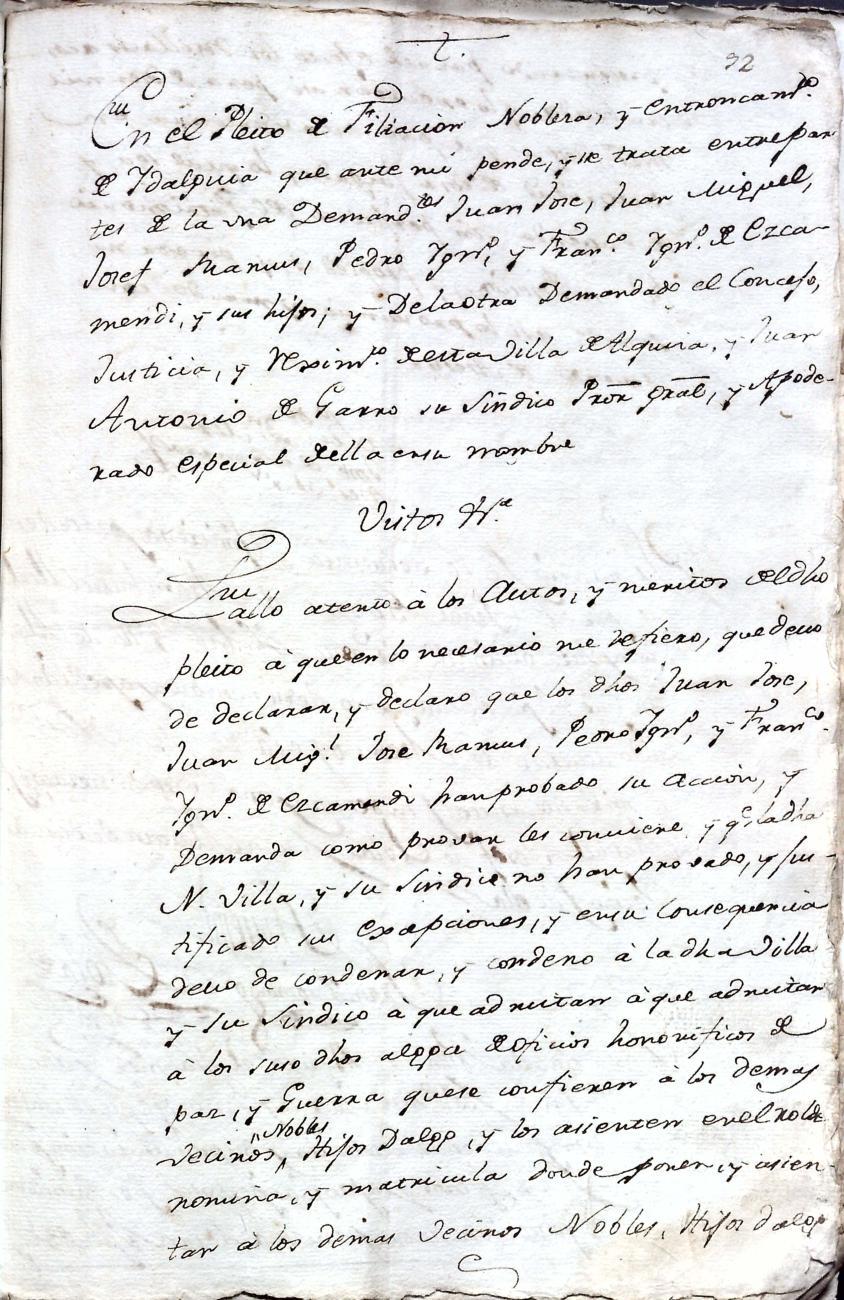 †.
32
En el Pleito de Filiacion Nobleza, y entroncam.to
de Ydalguia que ante mi pende, y se trata entre par
tes de la vna Demand.tes Juan Jose, Juan Miguel,
Josef Ramus, Pedro Ign.o, y Fran.co Ign.o de Ezca-
mendi, y sus hijos; y Dela otra Demandado el Concejo,
Justicia, y Reximt.o de esta Villa de Alquiza, y Juan
Antonio de Garro su Sindico Pror gral, y Apode-
rado especial de ella en su nombre
Vistos &.a
Fallo atento à los Autos, y meritos del dho
pleito à que en lo necesario me refiero, que devo
de declarar, y declaro que los dhos Juan Jose,
Juan Mig.l Jose Ramus, Pedro Ign.o, y Fran.co
Ign.o de Ezcamendi han probado su acción, y
Demanda como provar les conviene y q.e la dha
N. Villa, y su Sindico no han provado, y jus-
tificado sus excepciones, y en su consequencia
devo de condenar, y condeno à la dha Villa
y su Sindico à que admitan à que admitan
à los suso dhos al goce de oficios honorificos de
paz, y Guerra que se confieren à los demas
vecinos Nobles Hijos Dalgo, y los asienten en el rolde
nomina, y matricula donde ponen, y asien-
tan à los demas vecinos Nobles, Hijos dalgo